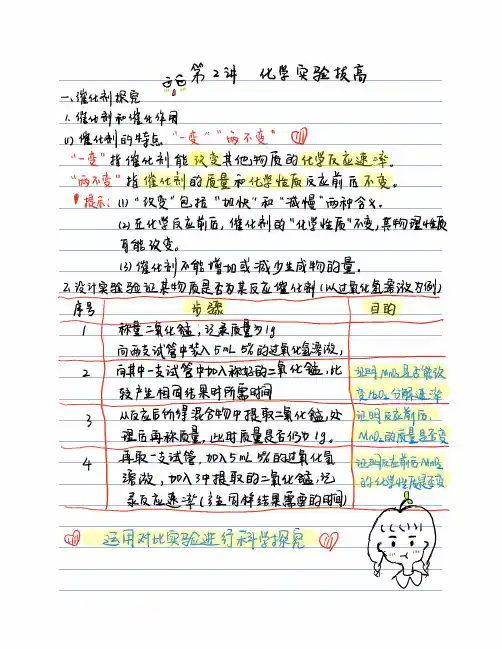 第2讲 化学实验拔高
一、催化剂探究
1. 催化剂和催化作用
(1) 催化剂的特点 “一变”“两不变”
“一变”指催化剂能改变其他物质的化学反应速率。
“两不变”指催化剂的质量和化学性质反应前后不变。
提示: (1) “改变”包括“加快”和“减慢”两种含义。
(2) 在化学反应前后, 催化剂的“化学性质”不变, 其物理性质
可能改变。
(3) 催化剂不能增加或减少生成物的量。
2. 设计实验验证某物质是否为某反应催化剂 (以过氧化氢溶液为例)
序号 步骤 目的
1 称量二氧化锰, 记录质量为1g
向两支试管中装入5mL 5%的过氧化氢溶液,
2 向其中一支试管中加入称好的二氧化锰, 比
较产生相同结果时所需时间
证明MnO₂是否能改
变H₂O₂分解速率
3 从反应后所得混合物中提取二氧化锰, 处
理后再称质量, 此时质量是否仍为1g。
证明反应前后,
MnO₂的质量是否变
4 再取一支试管, 加入5mL 5%的过氧化氢
溶液, 加入3中提取的二氧化锰, 记
录反应速率(产生同样结果需要的时间)
证明反应前后MnO₂
的化学性质是否变
运用对比实验进行科学探究